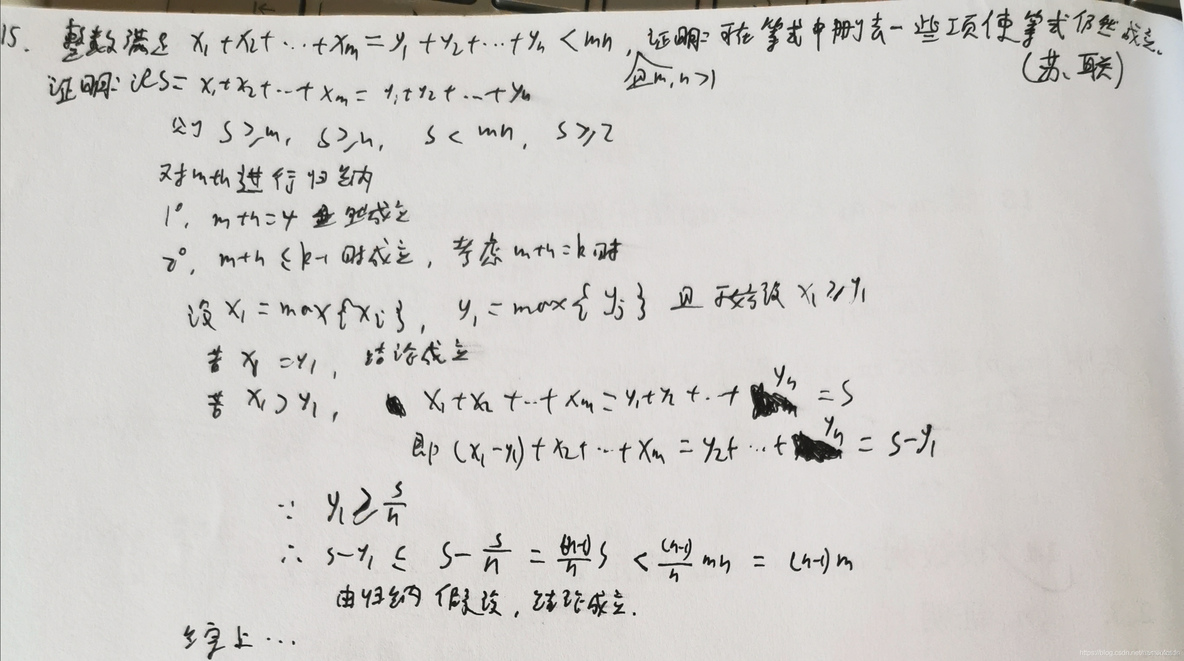 15. 整数满足 x₁+x₂+⋯+xₘ=y₁+y₂+⋯+yₙ<mn, 证明:可在等式中删去一些项使等式仍然成立.
且m,n>1 (苏、联)
证明:记S=x₁+x₂+⋯+xₘ=y₁+y₂+⋯+yₙ
则 S≥m, S≥n, S<mn, S≥2
对m+n进行归纳
1°, m+n=4 成立
2°, m+n≤k-1时成立, 考虑m+n=k时
设 x₁=max{xᵢ}, y₁=max{yⱼ} 且不妨设 x₁≥y₁
若 x₁=y₁, 结论成立
若 x₁>y₁, x₁+x₂+⋯+xₘ=y₁+y₂+⋯+yₙ=S
即 (x₁-y₁)+x₂+⋯+xₘ=y₂+⋯+yₙ=S-y₁
∵ y₁≥S/n
∴ S-y₁≤S-S/n=(n-1)/n S<(n-1)/n mn=(n-1)m
由归纳假设, 结论成立.
综上⋯